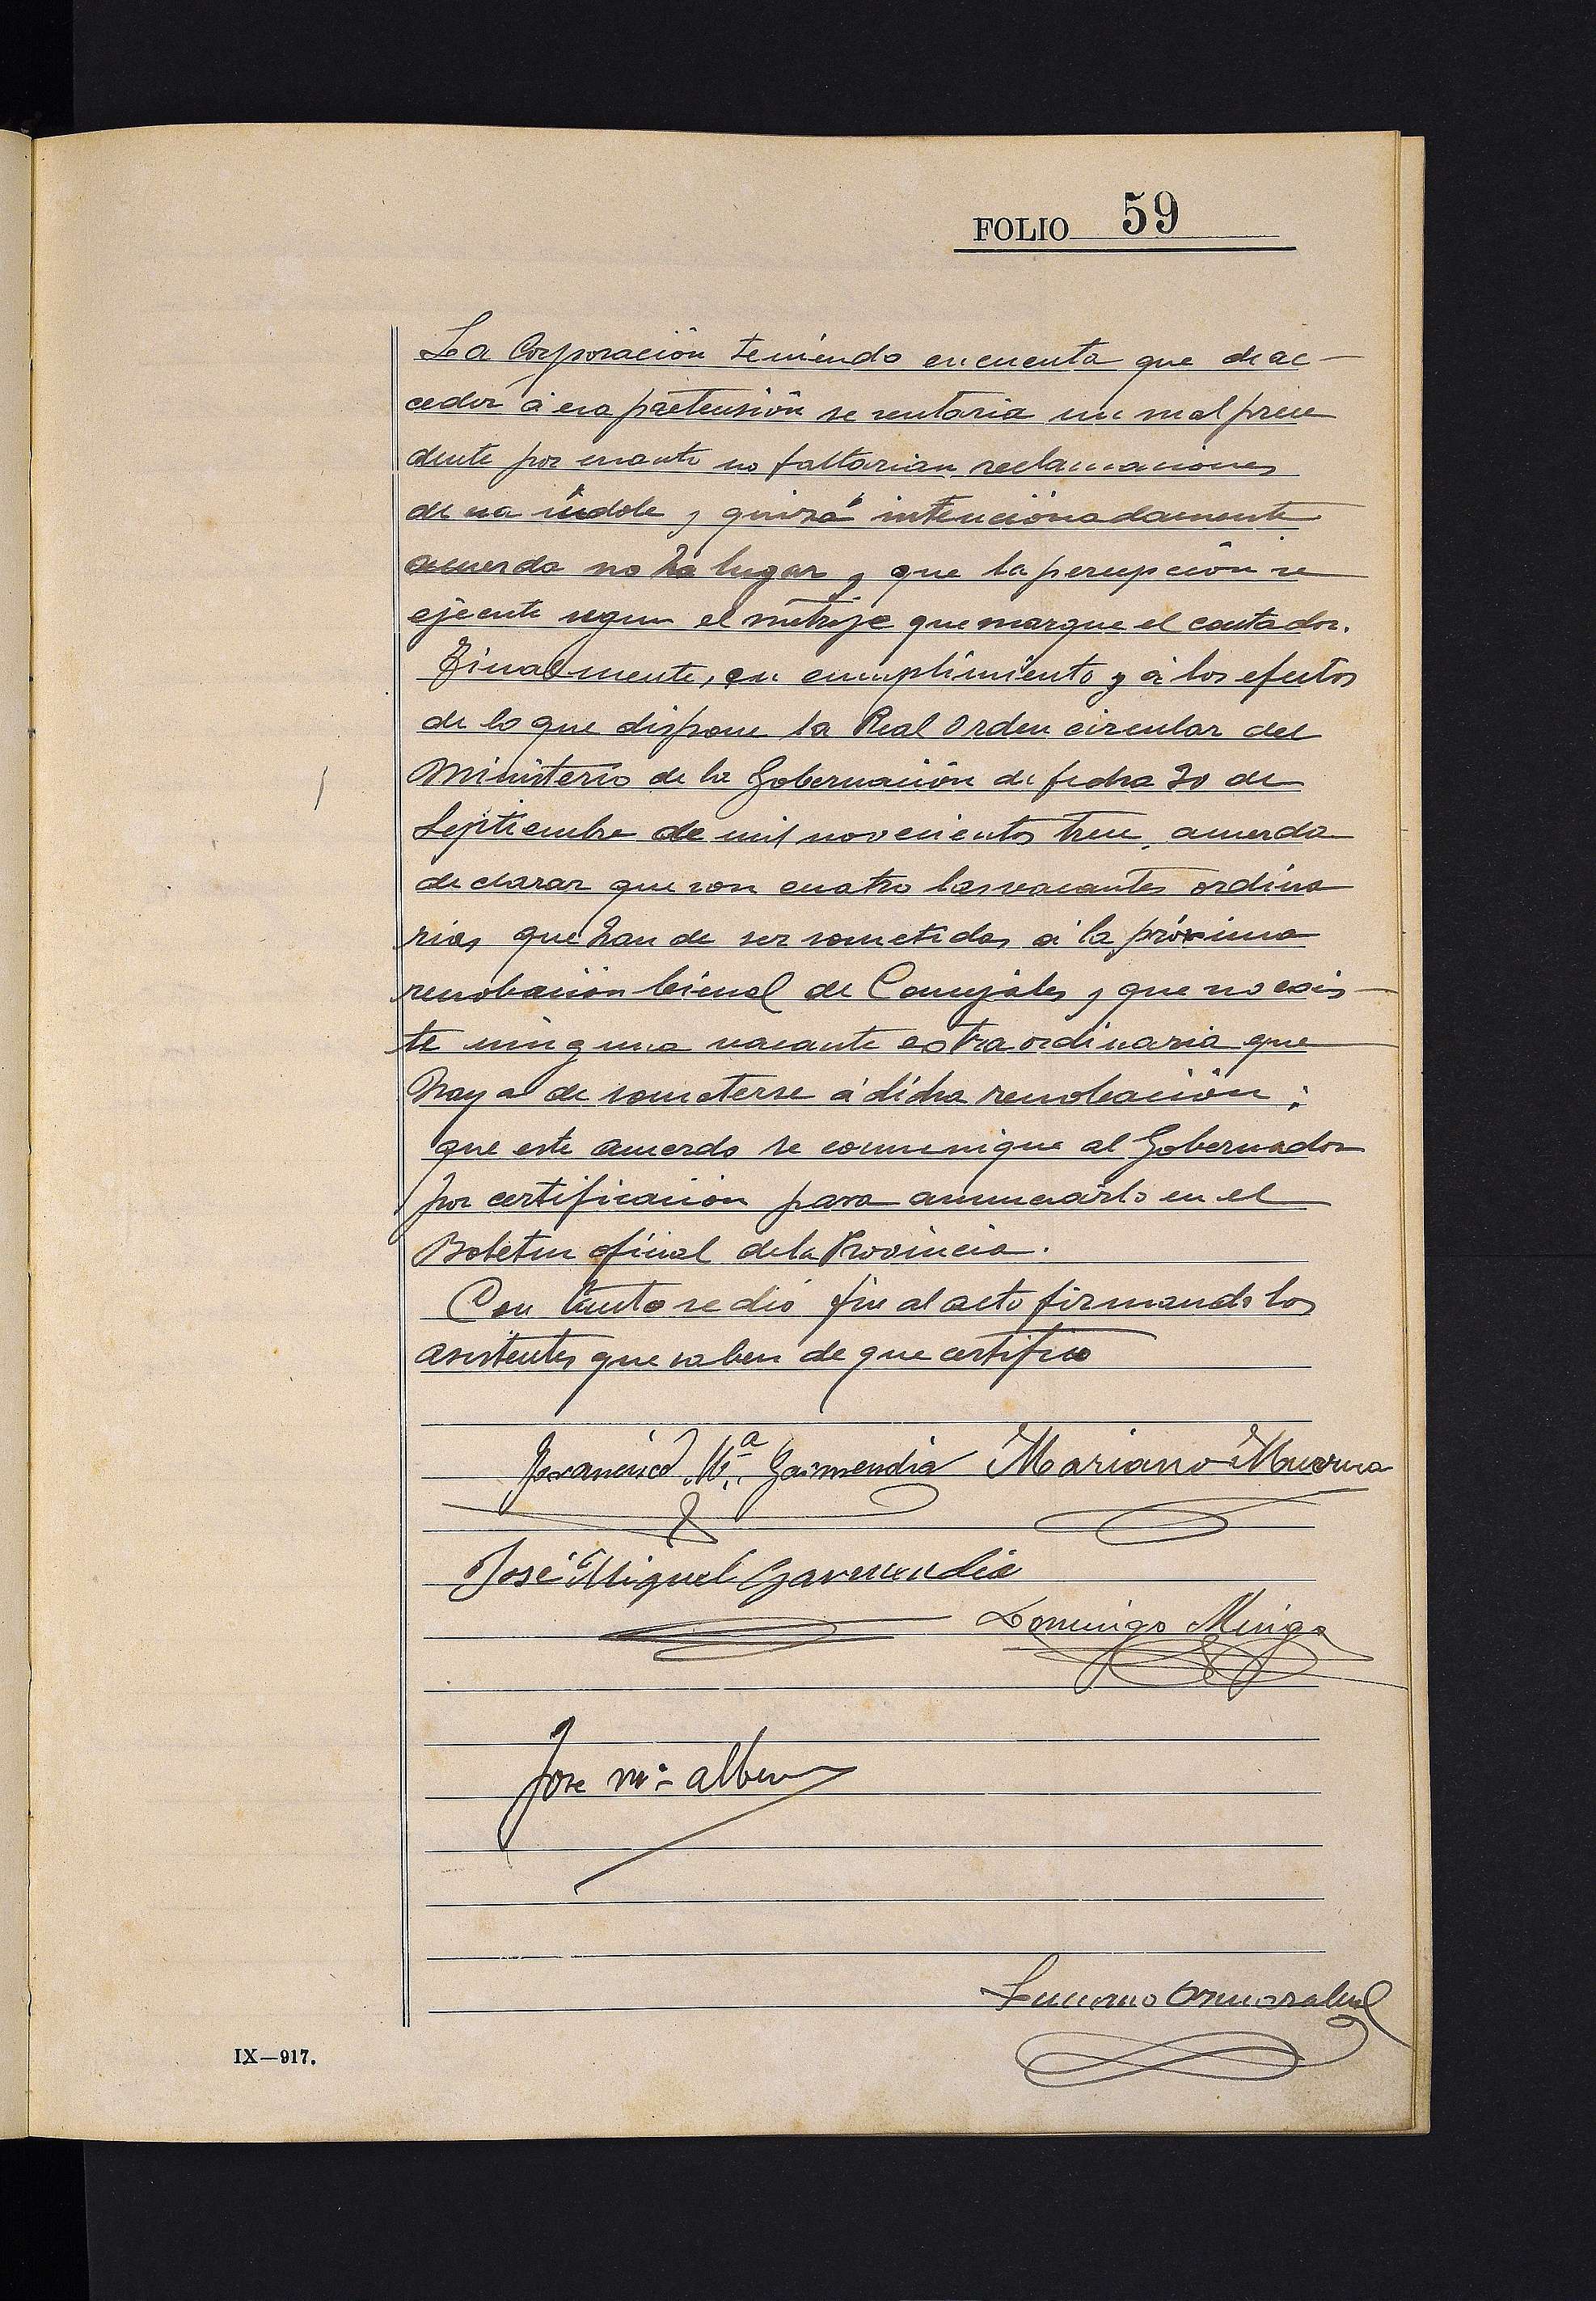 FOLIO 59
La Corporación teniendo en cuenta que de ac-
ceder á esa pretensión se sentaria un mal prece
dente por cuanto no faltarian reclamaciones
de esa índole y quizá intencionadamente
acuerda no ha lugar y que la percepción se
ejecute segun el metraje que marque el contador.
Finalmente, en cumplimiento y á los efectos
de lo que dispone la Real Orden circular del
Ministerio de la Gobernación de fecha 20 de
Septiembre de mil novecientos trece, acuerda
declarar que son cuatro las vacantes ordina
rias que han de ser sometidas á la próxima
renobación bienal de Concejales y que no exis-
te ninguna vacante extraordinaria que
haya de someterse á dicha renobación;
que este acuerdo se comunique al Gobernador
por certificación para anunciarlo en el
Boletin oficial de la Provincia.
Con tanto se dió fin al acto firmando los
asistentes que saben de que certifico
Francisco Mª. Garmendia Mariano Muerza
José Miguel Garmendia
Domingo
Jose Mª
Luciano
IX—917.